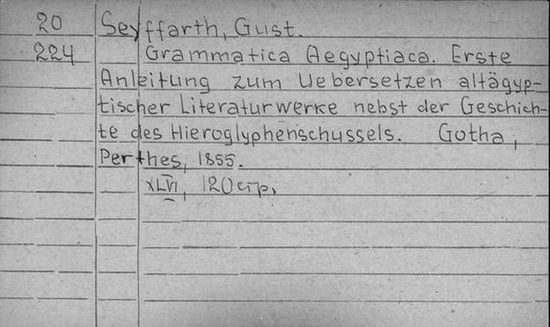 20 Seyffarth, Gust.
224 Grammatica Aegyptiaca. Erste
Anleitung zum Uebersetzen altägyp-
tischer Literaturwerke nebst der Geschich-
te des Hieroglyphenschussels. Gotha,
Perthes, 1855.
XLVI, 120 стр.